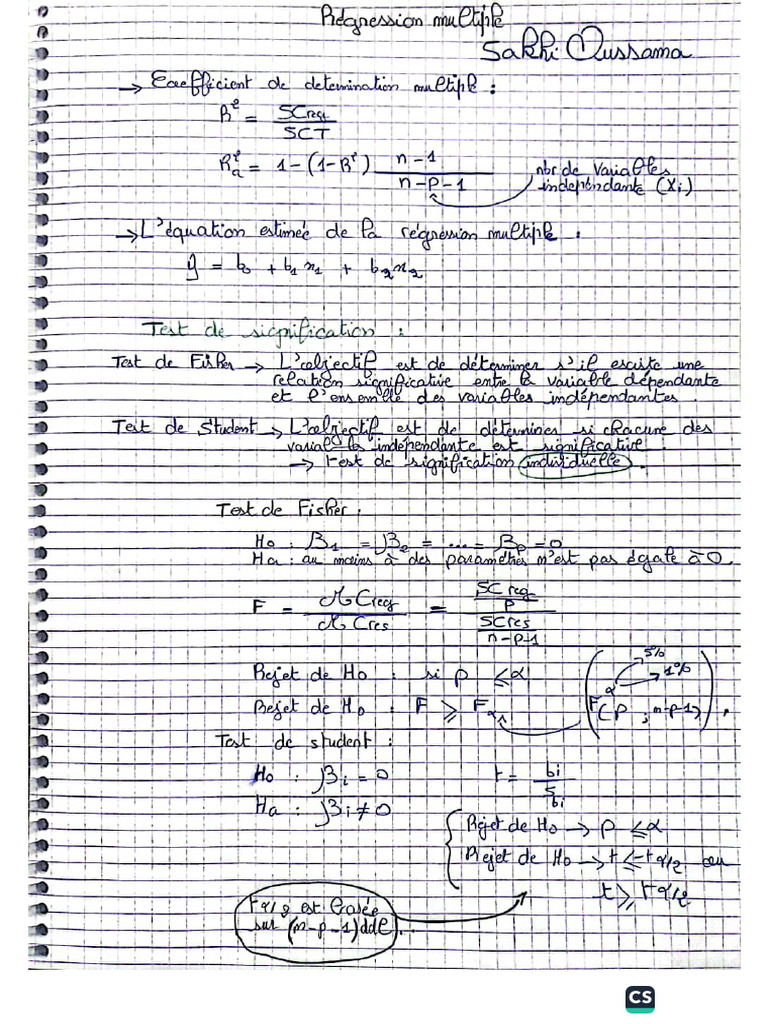 Régression multiple
Sakhi Oussama
→ Coefficient de determination multiple :
R² = SCreg / SCT
R²a = 1 - (1 - R²) (n-1) / (n-p-1)
nbr de variables
indépendante (Xi)
→ L'équation estimée de la régression multiple :
ŷ = b0 + b1x1 + b2x2
Test de signification :
Test de Fisher → L'objectif est de déterminer s'il existe une
relation significative entre la variable dépendante
et l'ensemble des variables indépendantes.
Test de Student → L'objectif est de déterminer si chacune des
variables indépendante est significative.
→ test de signification individuelle.
Test de Fisher.
Ho : β1 = β2 = ... = βp = 0
Ha : au moins à des paramètres n'est pas égale à 0.
F = MCreg / MCres = (SCreg / p) / (SCres / n-p-1)
Rejet de Ho : si p ≤ α
5%
1%
Rejet de Ho : F ≥ Fα
Fα (P ; n-p-1).
Test de student :
Ho : βi = 0
t = bi / Sbi
Ha : βi ≠ 0
Rejet de Ho → p ≤ α
Rejet de Ho → t ≤ -tα/2 ou
t ≥ tα/2
tα/2 est basée
sur (n-p-1) ddl.
CS